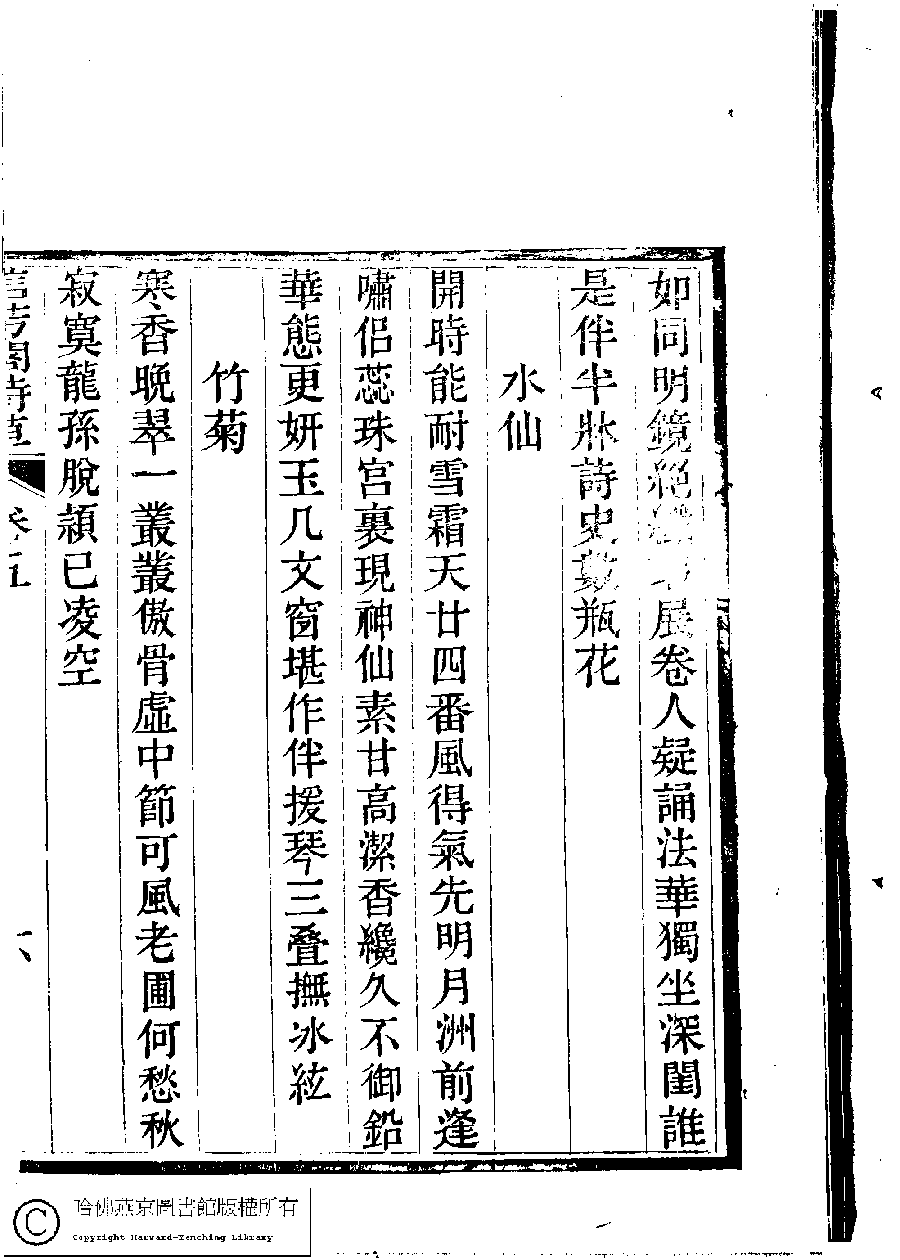 如同明鏡絕展卷人疑誦法華獨坐深閨誰
是伴半牀詩史數瓶花
水仙
開時能耐雪霜天廿四番風得氣先明月洲前逢
嘯侶蕊珠宮裏現神仙素甘高潔香纔久不御鉛
華態更妍玉几文窗堪作伴援琴三疊撫冰絃
竹菊
寒香晚翠一叢叢傲骨虛中節可風老圃何愁秋
寂寞龍孫脫穎已凌空
信芳閣詩草 卷五 六
哈佛燕京圖書館版權所有
Copyright Harvard-Yenching Library